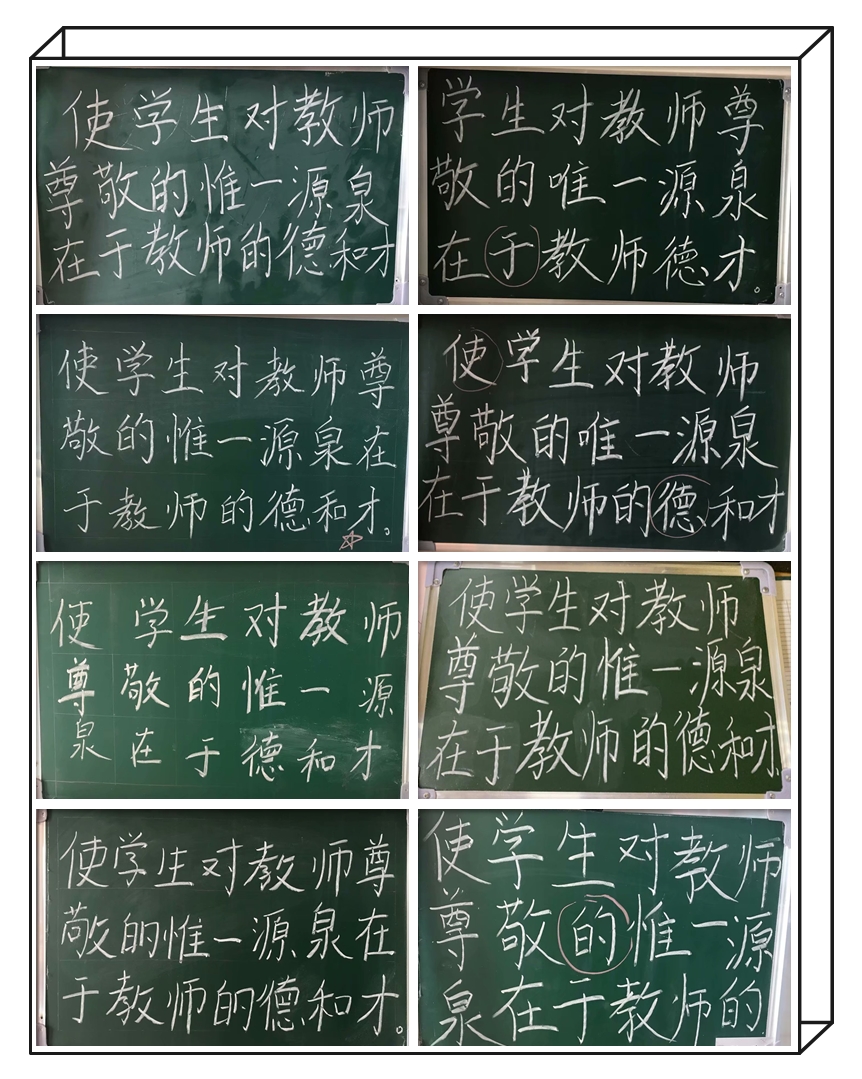 使学生对教师
尊敬的惟一源泉
在于教师的德和才
学生对教师尊
敬的唯一源泉
在于教师德才。
使学生对教师尊
敬的惟一源泉在
于教师的德和才。
使学生对教师
尊敬的唯一源泉
在于教师的德和才
使学生对教师
尊敬的惟一源
泉在于德和才
使学生对教师
尊敬的惟一源泉
在于教师的德和才.
使学生对教师尊
敬的惟一源泉在
于教师的德和才。
使学生对教师
尊敬的惟一源
泉在于教师的